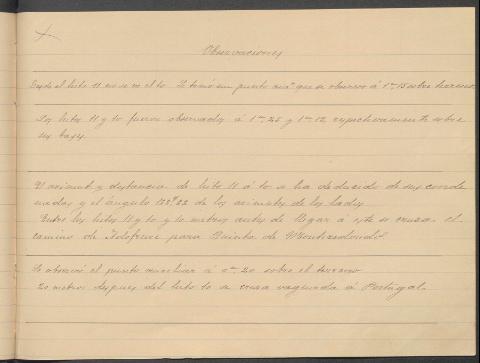 Observaciones
Desde el hito 11 no se ve el 10. Se tomó un punto aux.r que se observó á 1m,15 sobre terreno
Los hitos 11 y 10 fueron observados á 1m,25 y 1m,12 respectivamente sobre
sus bases
El azimut y distancia de hito 11 á 10 se ha deducido de sus coorde
nadas y el ángulo de los azimutes de los lados
Entre los hitos 11 y 10 y 10 metros antes de llegar á este se cruza el
camino de para Quinta de
Se observó el punto auxiliar á 0m,20 sobre el terreno
20 metros despues del hito 10 se cruza vaguada á Portugal.